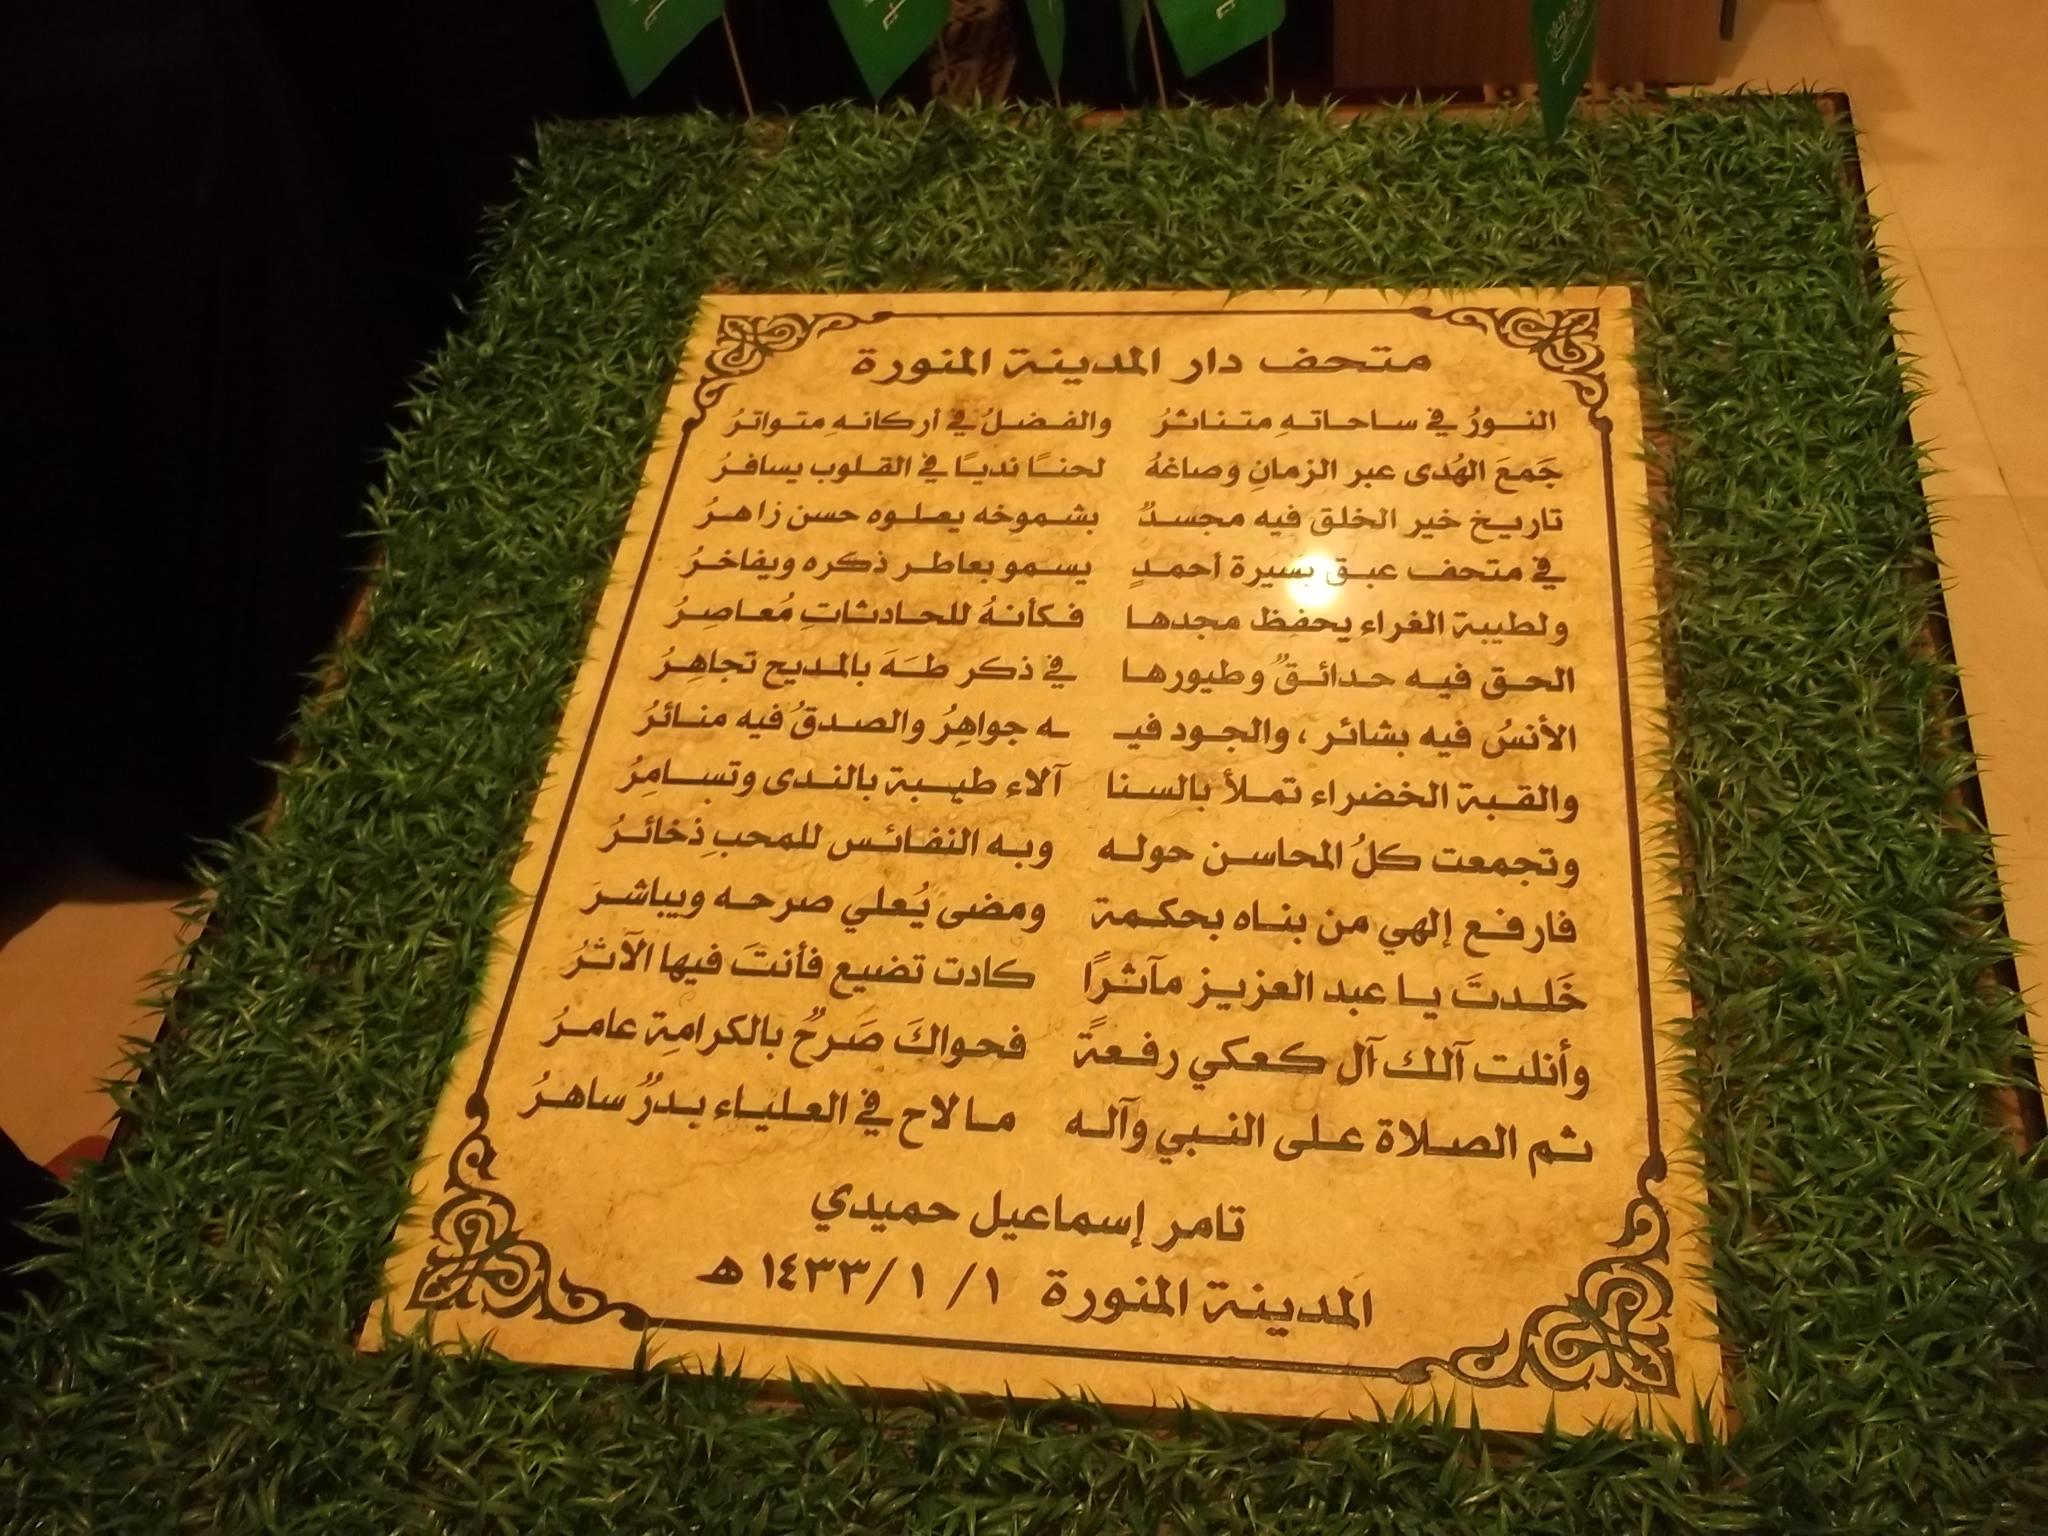 متحف دار المدينة المنورة
النورُ في ساحاتهِ متناثرُ والفضلُ في أركانهِ متواترُ
جَمعَ الهُدى عبر الزمانِ وصاغهُ لحنًا نديًا في القلوب يسافرُ
تاريخ خير الخلق فيه مجسدٌ بشموخه يعلوه حسن زاهرُ
في متحف عبق بسيرة أحمدٍ يسمو بعاطر ذكره ويفاخرُ
ولطيبة الغراء يحفظ مجدها فكأنهُ للحادثاتِ مُعاصِرُ
الحق فيه حدائقٌ وطيورها في ذكر طهَ بالمديح تجاهِرُ
الأنسُ فيه بشائر، والجود فيـ ـه جواهِرُ والصدقُ فيه منائرُ
والقبة الخضراء تملأ بالسنا آلاء طيبة بالندى وتسامِرُ
وتجمعت كلُ المحاسن حوله وبه النفائس للمحبِ ذخائرُ
فارفع إلهي من بناه بحكمة ومضى يُعلي صرحه ويباشرَ
خَلدتَ يا عبد العزيز مآثرًا كادت تضيع فأنتَ فيها الآثرُ
وأنلت آلك آل كعكي رفعةً فحواكَ صَرحٌ بالكرامةِ عامرُ
ثم الصلاة على النبي وآله ما لاح في العلياء بدرٌ ساهرُ
تامر إسماعيل حميدي
المدينة المنورة ١/ ١ /١٤٣٣ هـ